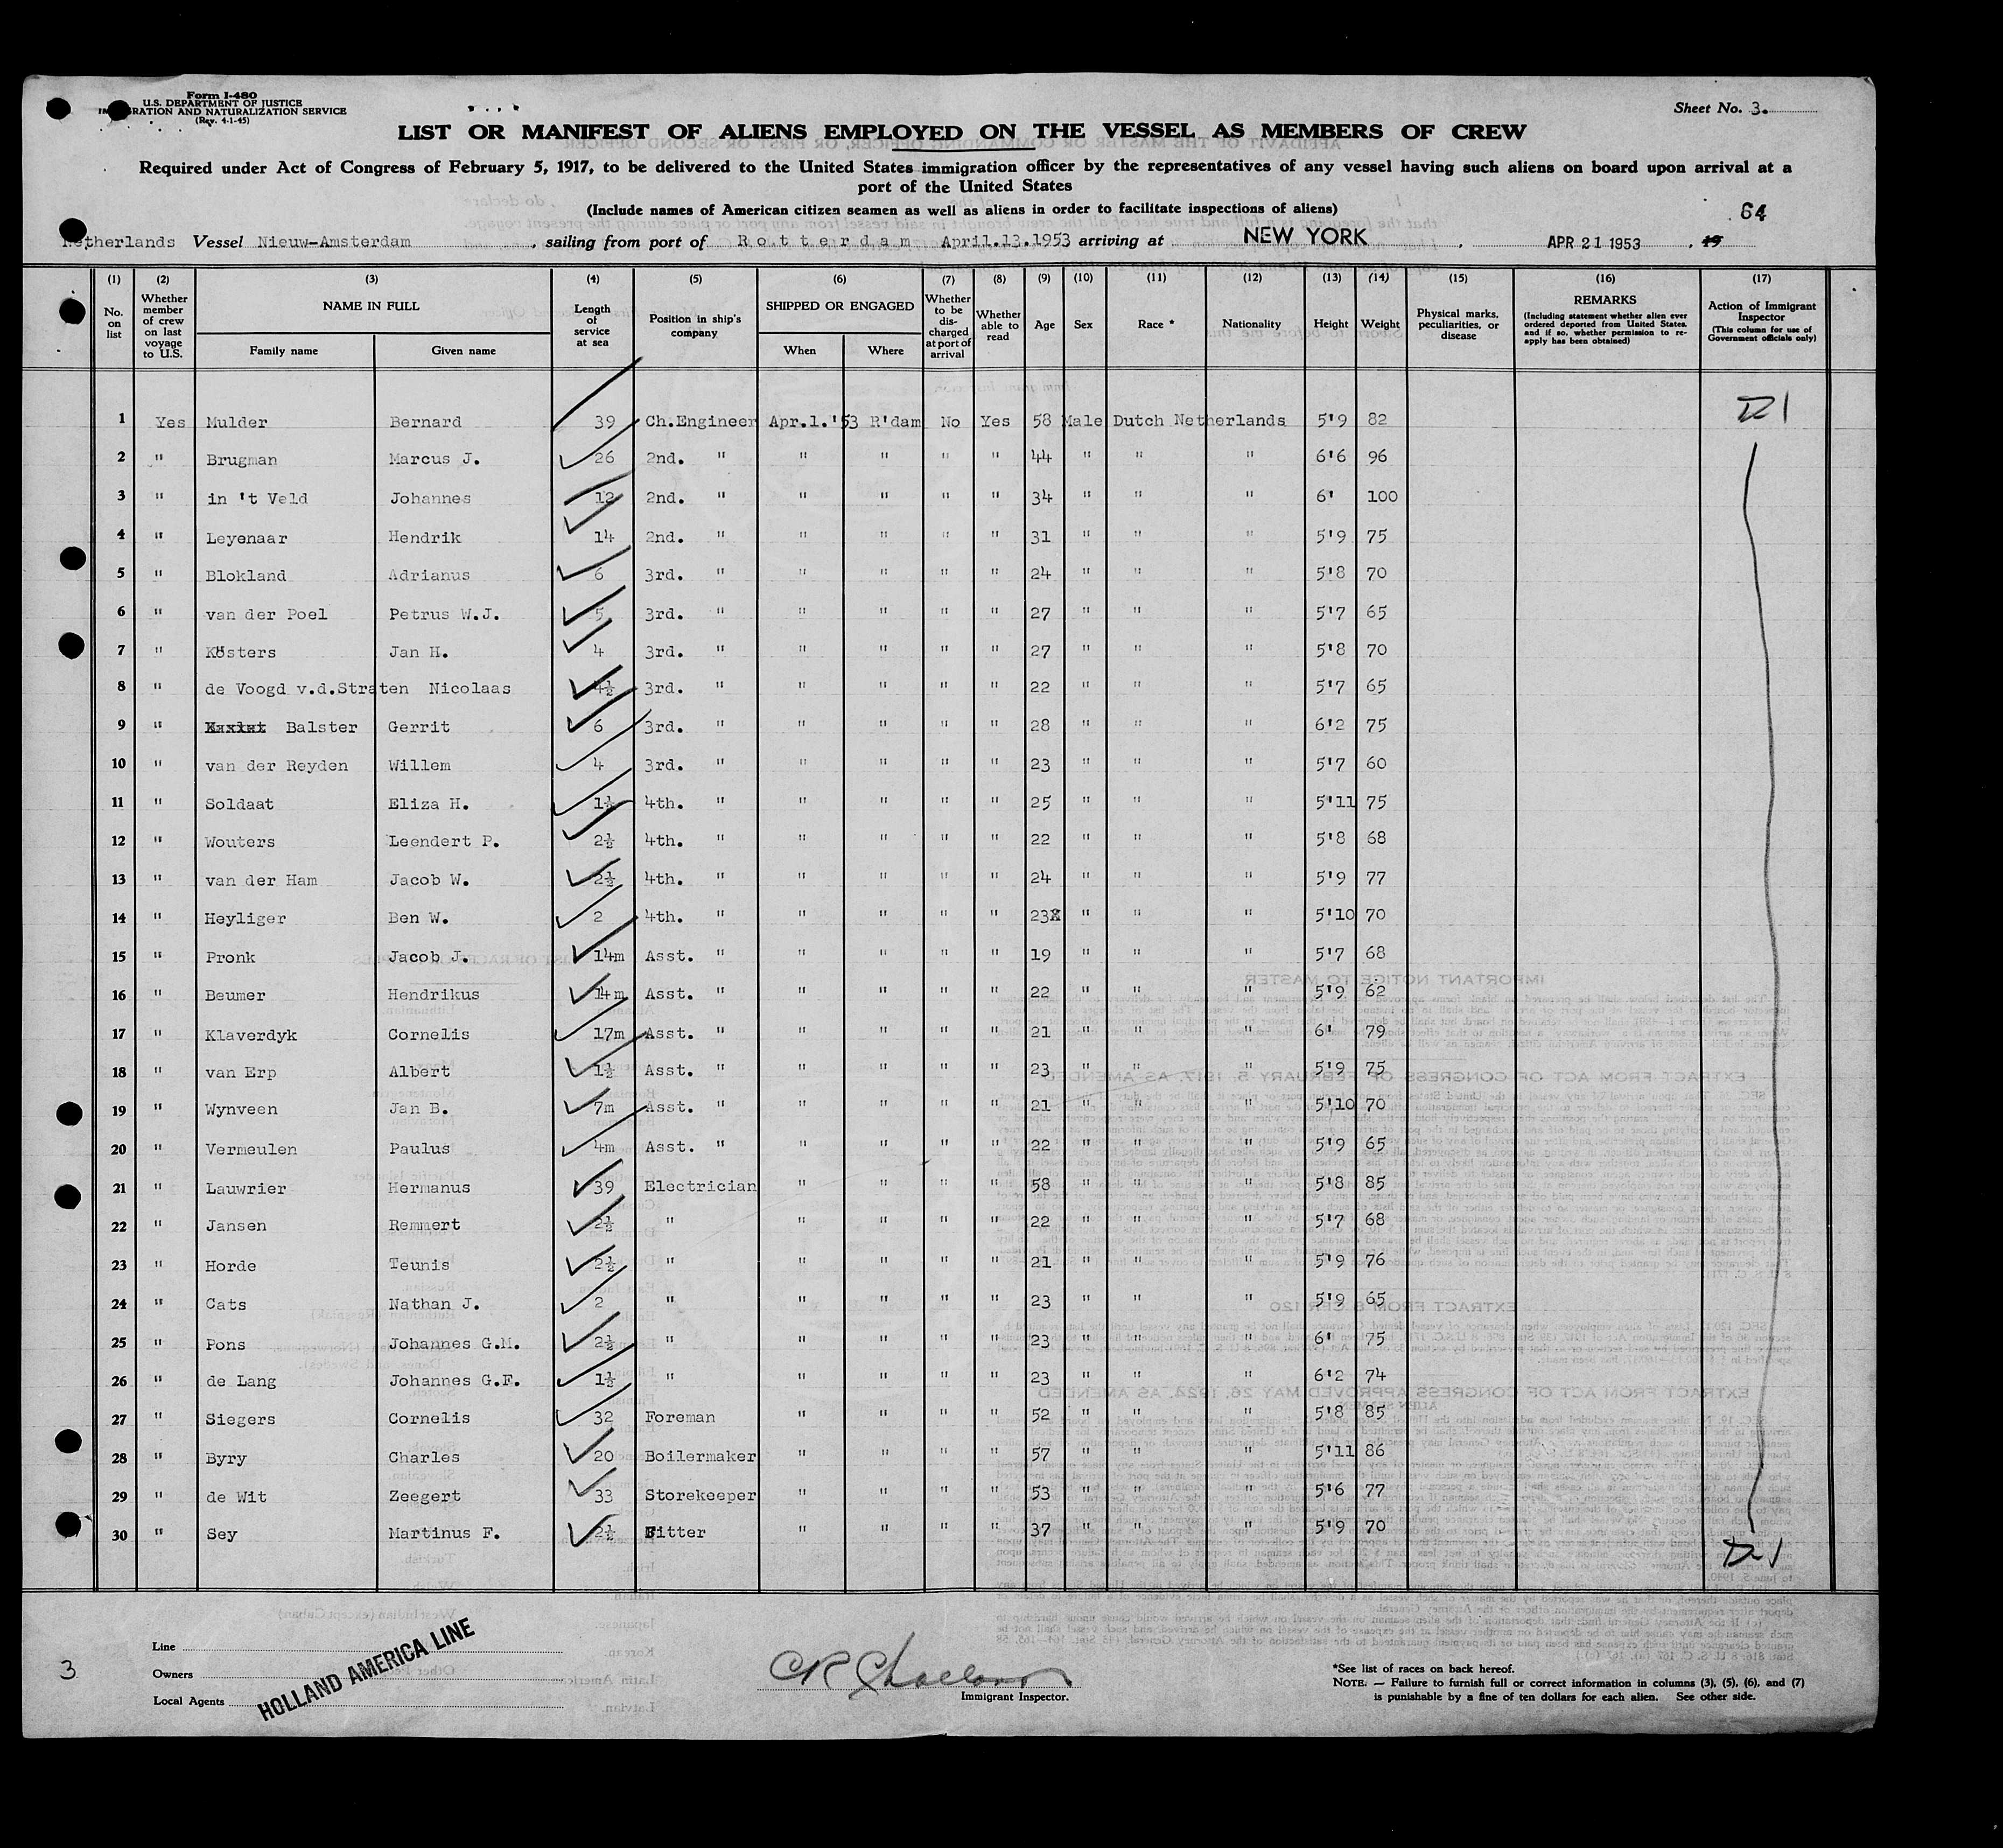 Form I-480
U.S. DEPARTMENT OF JUSTICE
IMMIGRATION AND NATURALIZATION SERVICE
(Rev. 4-1-45)
Sheet No. 3.
LIST OR MANIFEST OF ALIENS EMPLOYED ON THE VESSEL AS MEMBERS OF CREW
Required under Act of Congress of February 5, 1917, to be delivered to the United States immigration officer by the representatives of any vessel having such aliens on board upon arrival at a
port of the United States
(Include names of American citizen seamen as well as aliens in order to facilitate inspections of aliens)
64
Netherlands Vessel Nieuw-Amsterdam, sailing from port of Rotterdam April.13.1953 arriving at NEW YORK, APR 21 1953, 19
(1) (2) (3) (4) (5) (6) (7) (8) (9) (10) (11) (12) (13) (14) (15) (16) (17)
No. on list | Whether member of crew on last voyage to U.S. | NAME IN FULL | Family name | Given name | Length of service at sea | Position in ship's company | SHIPPED OR ENGAGED | When | Where | Whether to be discharged at port of arrival | Whether able to read | Age | Sex | Race * | Nationality | Height | Weight | Physical marks, peculiarities, or disease | REMARKS (Including statement whether alien ever ordered deported from United States, and if so, whether permission to re-apply has been obtained) | Action of Immigrant Inspector (This column for use of Government officials only)
1 Yes Mulder Bernard 39 Ch.Engineer Apr.1.'53 R'dam No Yes 58 Male Dutch Netherlands 5'9 82
2 " Brugman Marcus J. 26 2nd. " " " " " 44 " " " 6'6 96
3 " in 't Veld Johannes 12 2nd. " " " " " 34 " " " 6' 100
4 " Leyenaar Hendrik 14 2nd. " " " " " 31 " " " 5'9 75
5 " Blokland Adrianus 6 3rd. " " " " " 24 " " " 5'8 70
6 " van der Poel Petrus W.J. 5 3rd. " " " " " 27 " " " 5'7 65
7 " Kösters Jan H. 4 3rd. " " " " " 27 " " " 5'8 70
8 " de Voogd v.d.Straten Nicolaas 4½ 3rd. " " " " " 22 " " " 5'7 65
9 " Balster Gerrit 6 3rd. " " " " " 28 " " " 6'2 75
10 " van der Reyden Willem 4 3rd. " " " " " 23 " " " 5'7 60
11 " Soldaat Eliza H. 1½ 4th. " " " " " 25 " " " 5'11 75
12 " Wouters Leendert P. 2½ 4th. " " " " " 22 " " " 5'8 68
13 " van der Ham Jacob W. 2½ 4th. " " " " " 24 " " " 5'9 77
14 " Heyliger Ben W. 2 4th. " " " " " 23 " " " 5'10 70
15 " Pronk Jacob J. 14m Asst. " " " " " 19 " " " 5'7 68
16 " Beumer Hendrikus 14m Asst. " " " " " 22 " " " 5'9 62
17 " Klaverdyk Cornelis 17m Asst. " " " " " 21 " " " 6' 79
18 " van Erp Albert 1½ Asst. " " " " " 23 " " " 5'9 75
19 " Wynveen Jan B. 7m Asst. " " " " " 21 " " " 5'10 70
20 " Vermeulen Paulus 4m Asst. " " " " " 22 " " " 5'9 65
21 " Lauwrier Hermanus 39 Electrician " " " " 58 " " " 5'8 85
22 " Jansen Remmert 2½ " " " " " 22 " " " 5'7 68
23 " Horde Teunis 2½ " " " " " 21 " " " 5'9 76
24 " Cats Nathan J. 2 " " " " " 23 " " " 5'9 65
25 " Pons Johannes G.M. 2½ " " " " " 23 " " " 6' 75
26 " de Lang Johannes G.F. 1½ " " " " " 23 " " " 6'2 74
27 " Siegers Cornelis 32 Foreman " " " " 52 " " " 5'8 85
28 " Byry Charles 20 Boilermaker " " " " 57 " " " 5'11 86
29 " de Wit Zeegert 33 Storekeeper " " " " 53 " " " 5'6 77
30 " Sey Martinus F. 2½ Fitter " " " " 37 " " " 5'9 70
Line
Owners
Local Agents
HOLLAND AMERICA LINE
3
Immigrant Inspector.
*See list of races on back hereof.
NOTE. — Failure to furnish full or correct information in columns (3), (5), (6), and (7)
is punishable by a fine of ten dollars for each alien. See other side.